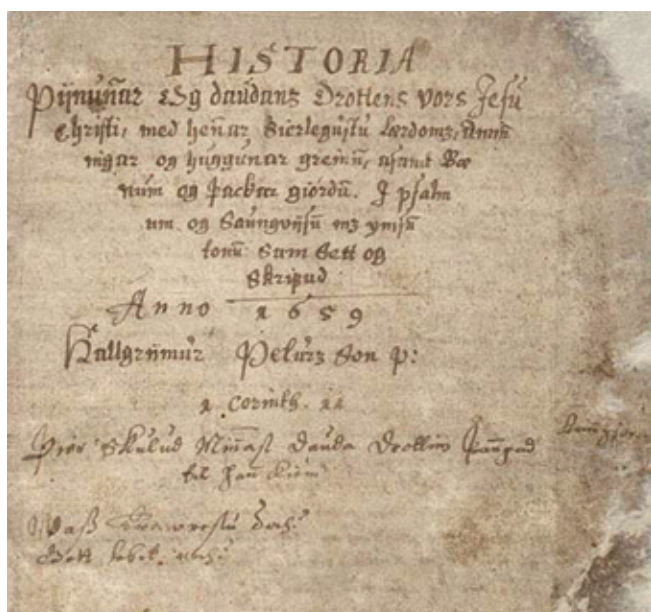 HISTORIA
Pijnunnar Og daudans Drottens vors Jesu
Christi, med hennar Sierlegustu Lærdoms, Amin
ingar og huggunar greinū, asamt Bæ
num og Þackar giördū. I psalm
um og Saungvijsū mz ymsū
tonū Sam Sett og
Skripud
Anno 1659
Hallgrijmur Peturz Son p:
1. Corinth. 11
Þier Skulud Minnast dauda Drottins Þangad
til hañ kiemr
Gott lebet noch